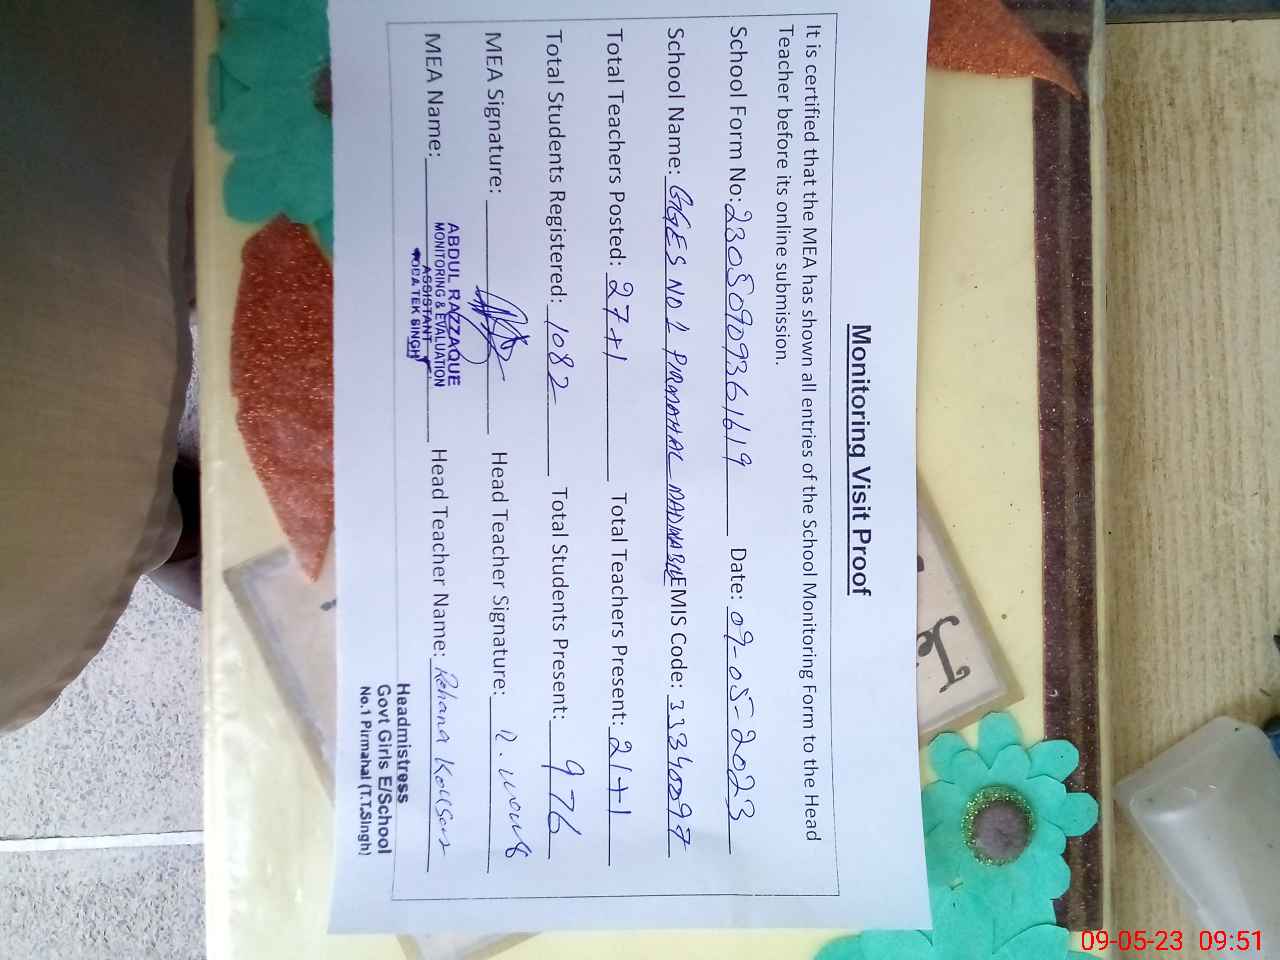 Monitoring Visit Proof
It is certified that the MEA has shown all entries of the School Monitoring Form to the Head
Teacher before its online submission.
School Form No: 23050909361619 Date: 09-05-2023
School Name: GGES NO 1 PIRMAHAL EMIS Code: 33340097
Total Teachers Posted: 27+1 Total Teachers Present: 21+1
Total Students Registered: 1082 Total Students Present: 976
MEA Signature: Head Teacher Signature:
MEA Name: Head Teacher Name: Rehana Kousar
ABDUL RAZZAQUE
MONITORING & EVALUATION
ASSISTANT
TOBA TEK SINGH
Headmistress
Govt Girls E/School
No.1 Pirmahal (T.T.Singh)
09-05-23 09:51